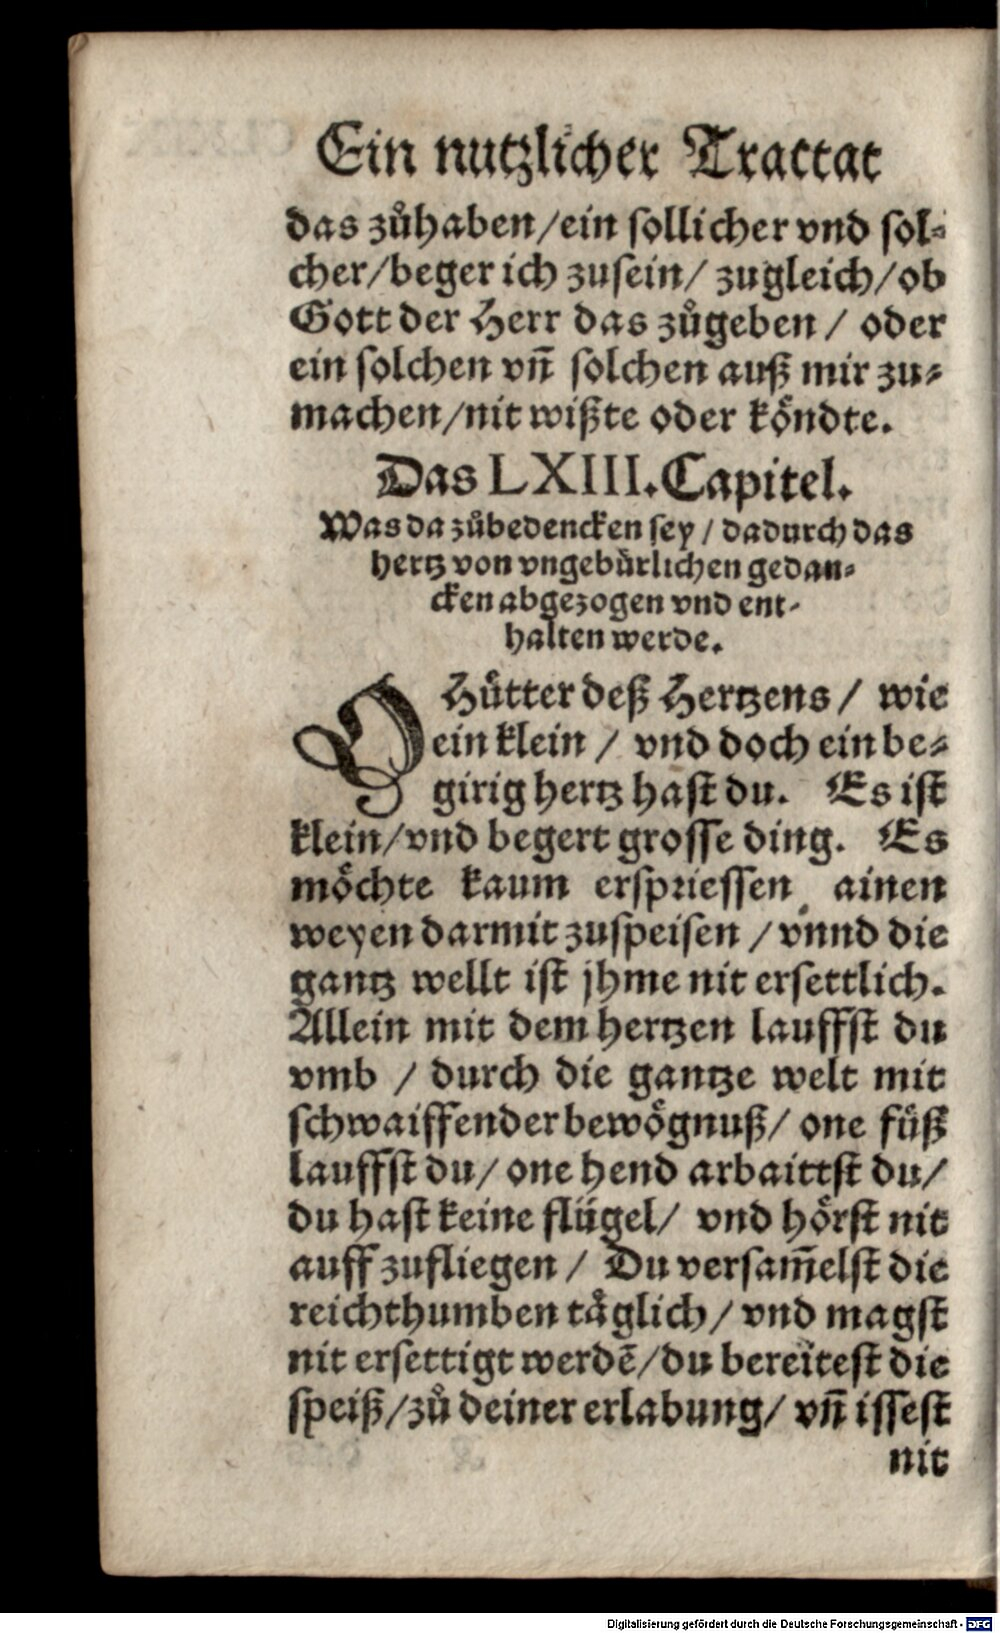 Ein nutzlicher Tractat
das zůhaben/ein sollicher vnd sol-
cher/beger ich zusein/ zugleich/ob
Gott der Herr das zůgeben/ oder
ein solchen vñ solchen auß mir zu-
machen/nit wißte oder köndte.
Das LXIII. Capitel.
Was da zůbedencken sey / dadurch das
hertz von vngebürlichen gedan-
cken abgezogen vnd ent-
halten werde.
O Hütter deß Hertzens / wie
ein klein / vnd doch ein be-
girig hertz hast du. Es ist
klein/vnd begert grosse ding. Es
möchte kaum erspriessen ainen
weyen darmit zuspeisen / vnnd die
gantz wellt ist jhme nit ersettlich.
Allein mit dem hertzen lauffst du
vmb / durch die gantze welt mit
schwaiffender bewögnuß/ one füß
lauffst du/ one hend arbaittst du/
du hast keine flügel/ vnd hörst nit
auff zufliegen / Du versam̃elst die
reichthumben täglich/ vnd magst
nit ersettigt werdẽ/du bereitest die
speiß/zů deiner erlabung/ vñ issest
nit
Digitalisierung gefördert durch die Deutsche Forschungsgemeinschaft - DFG